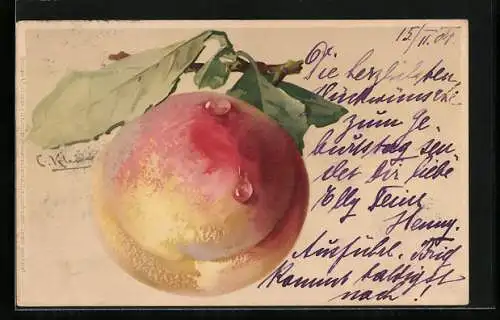 15/II.04.
Die herzlichsten
Glückwünsche
zum Ge-
burtstag sen-
det Dir liebe
Elly Deine
Henny.
Ausführl. Brief
kommt baldigst
nach!
C. Klein